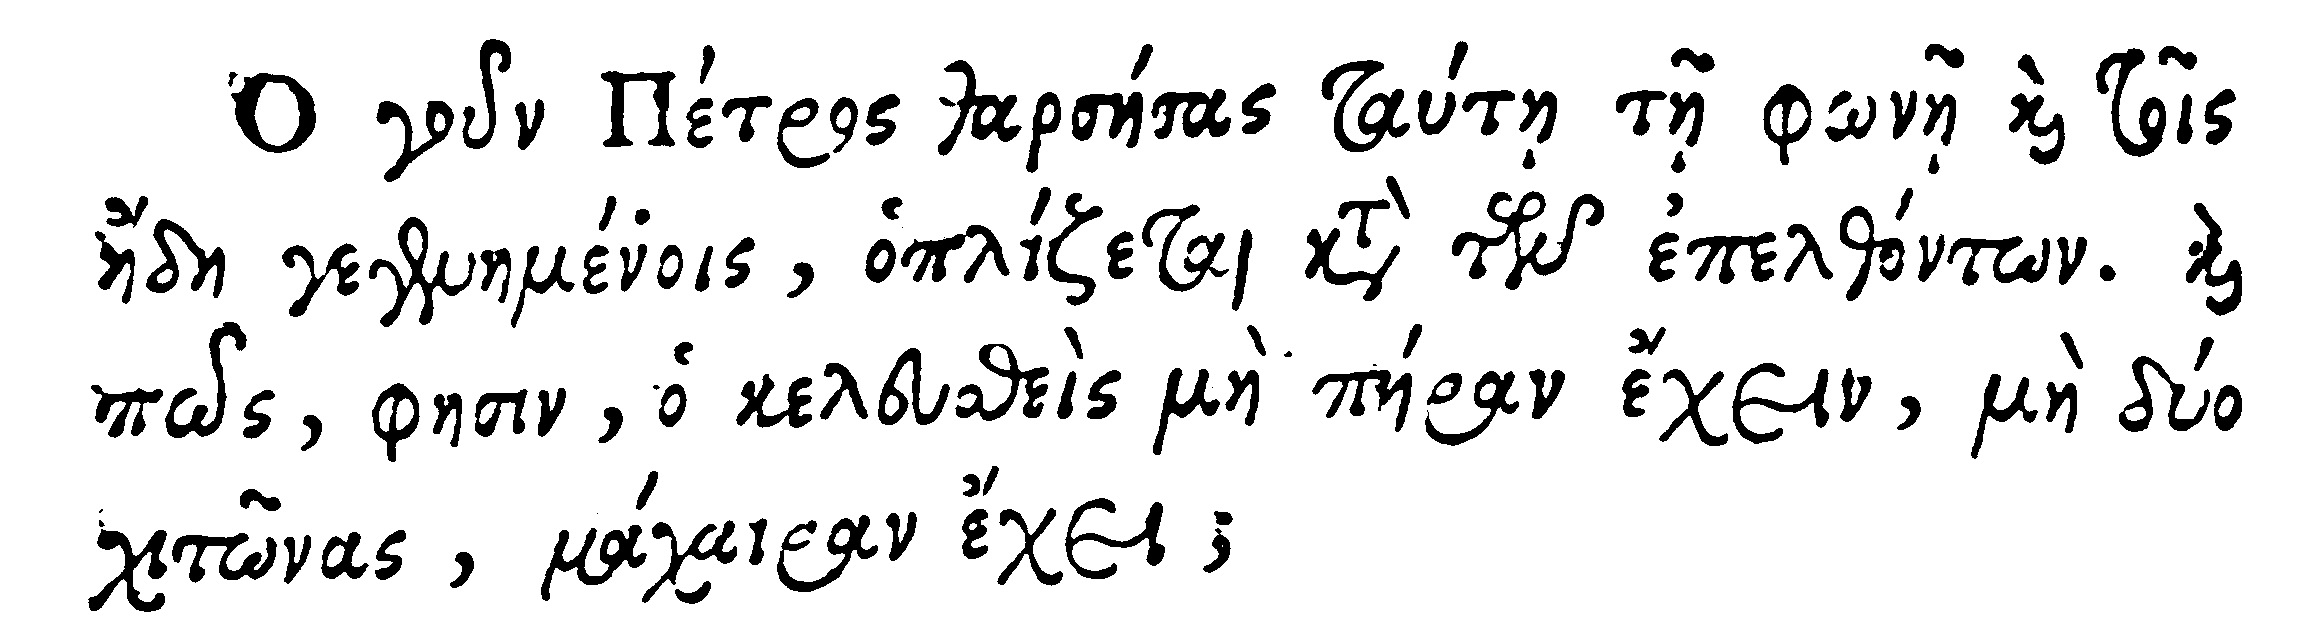 Ὁ γοῦν Πέτρος θαρσήσας ταύτῃ τῇ φωνῇ καὶ τοῖς
ἤδη γεγενημένοις, ὁπλίζεται κατὰ τῶν ἐπελθόντων. καὶ
πῶς, φησιν, ὁ κελευσθεὶς μὴ πήραν ἔχειν, μὴ δύο
χιτῶνας, μάχαιραν ἔχει;